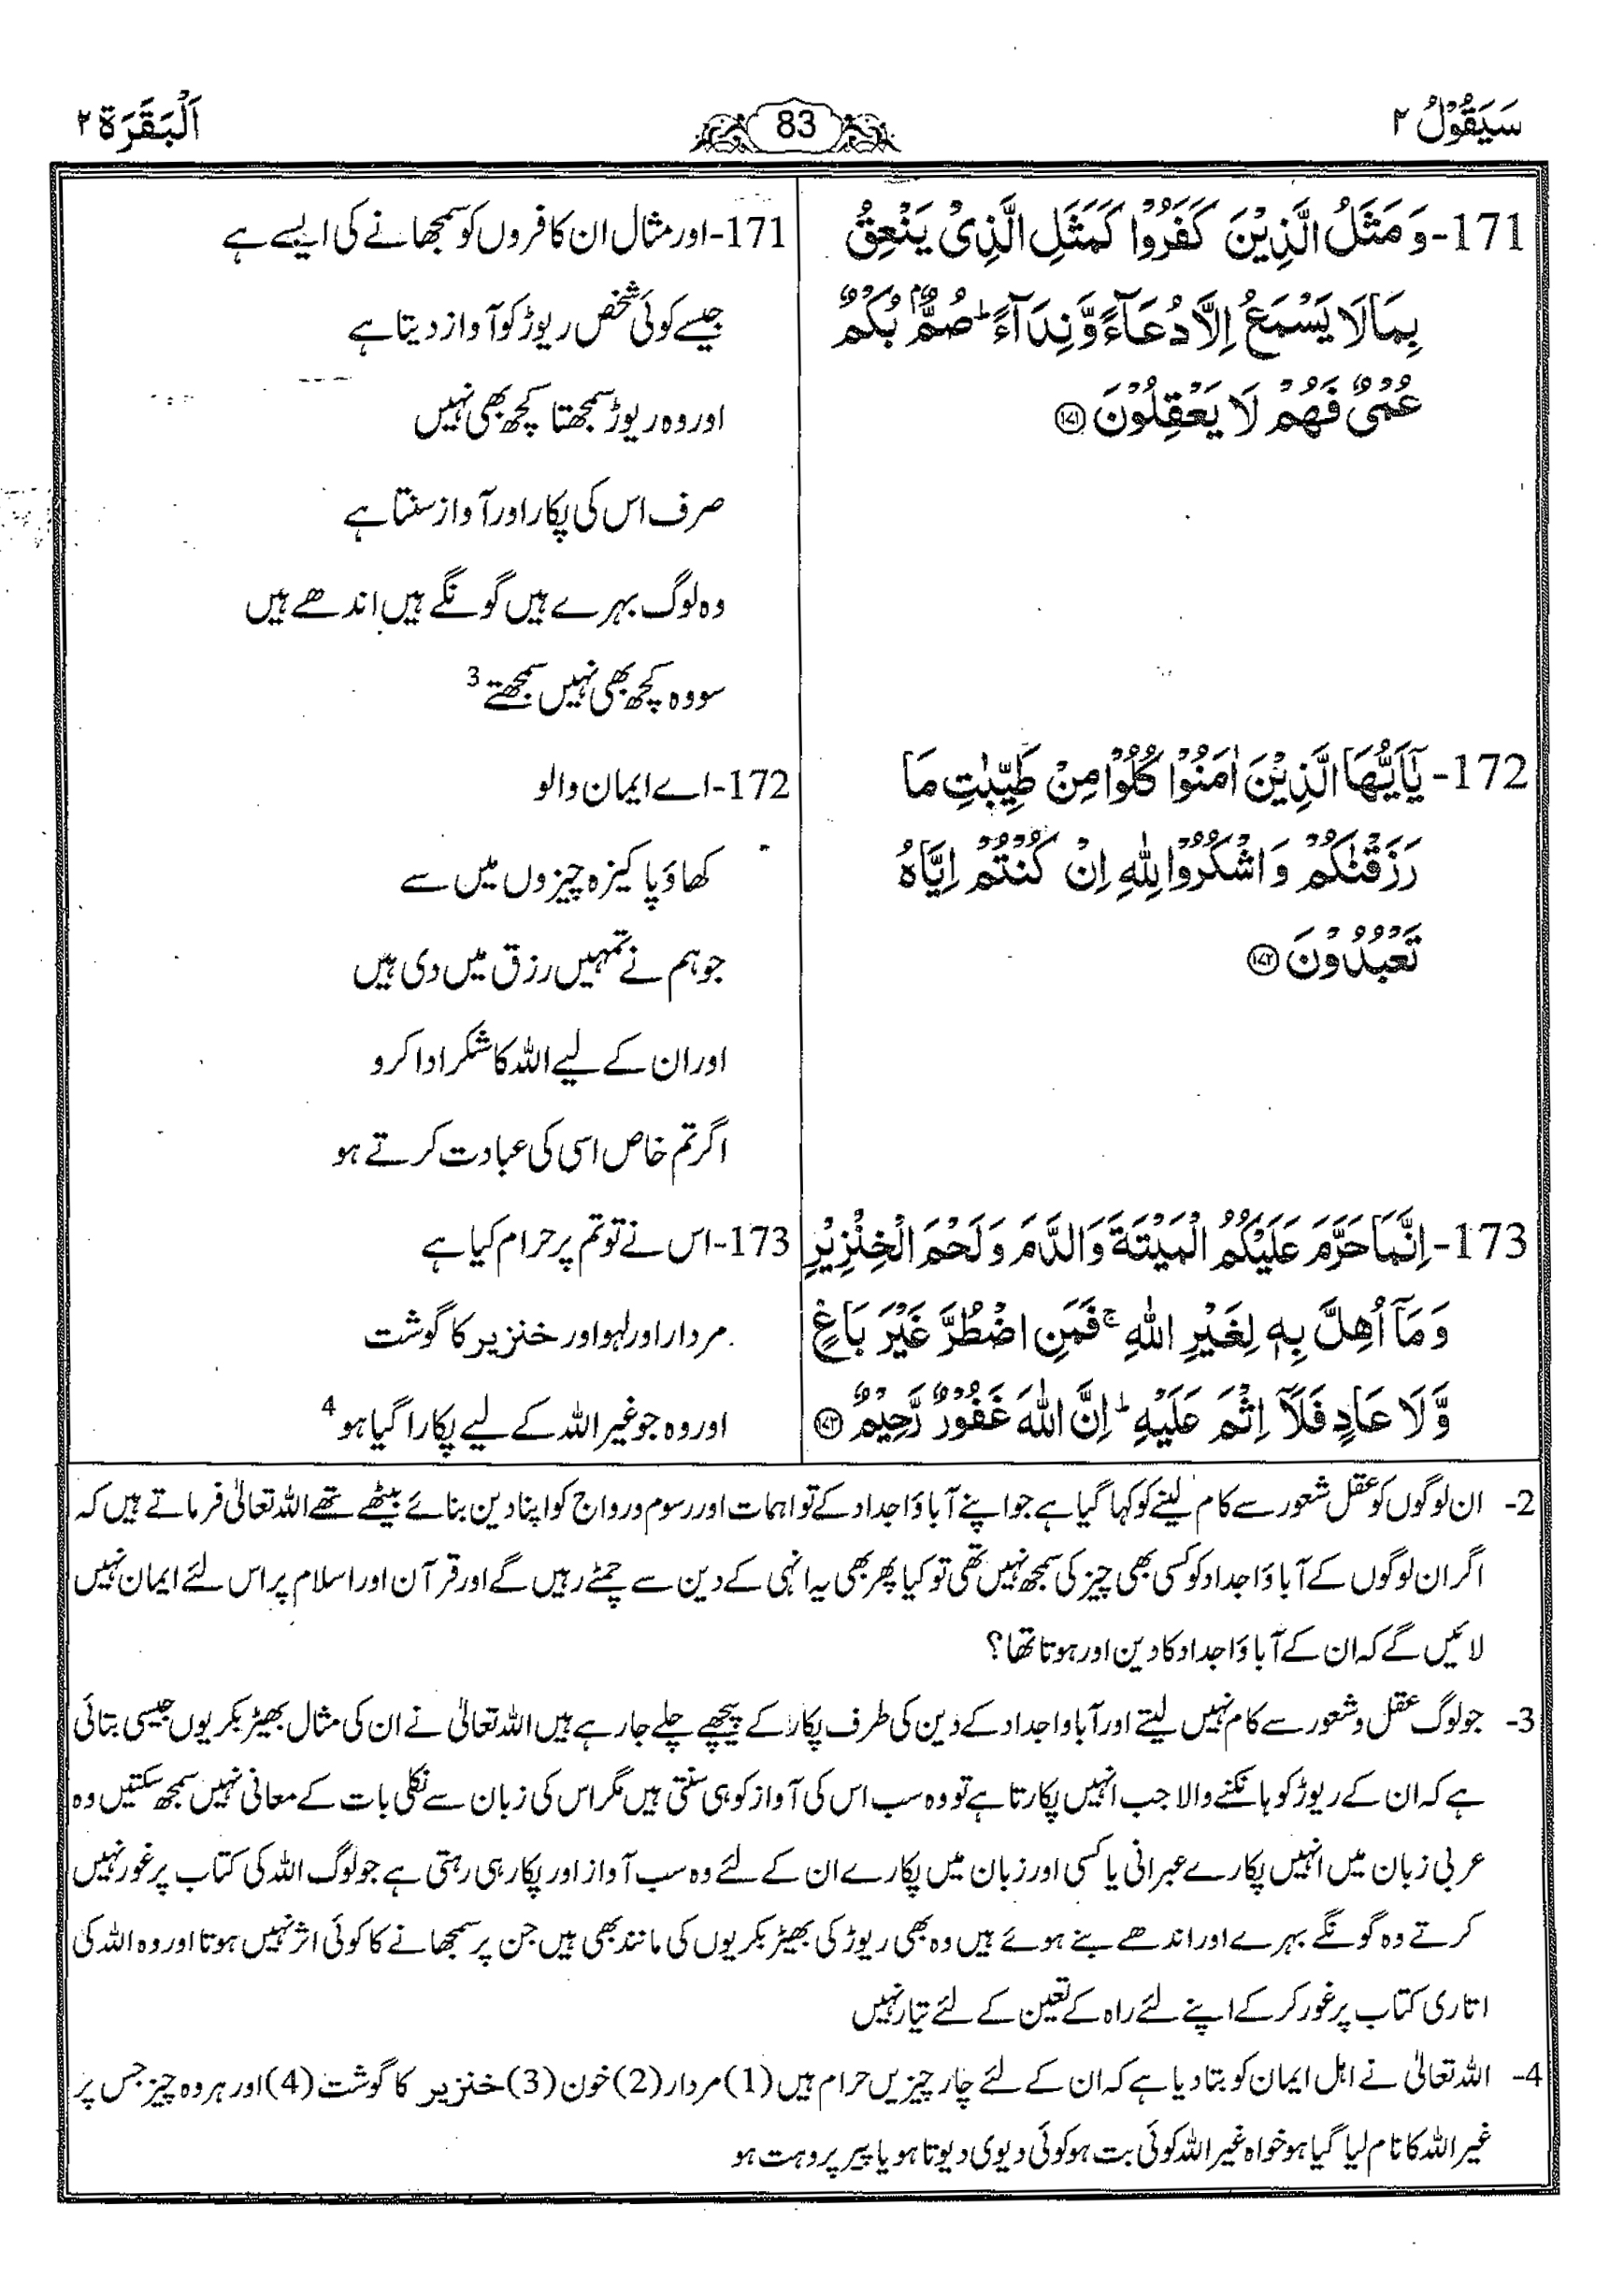 سَيَقُوْلُ ٢
83
اَلْبَقَرَة ٢
171- وَمَثَلُ الَّذِيْنَ كَفَرُوْا كَمَثَلِ الَّذِيْ يَنْعِقُ
بِمَا لَا يَسْمَعُ اِلَّا دُعَآءً وَّنِدَآءً ؕ صُمٌّۢ بُكْمٌ
عُمْيٌ فَهُمْ لَا يَعْقِلُوْنَ ﴿١٧١﴾
171- اور مثال ان کافروں کو سمجھانے کی ایسے ہے
جیسے کوئی شخص ریوڑ کو آواز دیتا ہے
اور وہ ریوڑ سمجھتا کچھ بھی نہیں
صرف اس کی پکار اور آواز سنتا ہے
وہ لوگ بہرے ہیں گونگے ہیں اندھے ہیں
سو وہ کچھ بھی نہیں سمجھتے 3
172- يٰٓاَيُّهَا الَّذِيْنَ اٰمَنُوْا كُلُوْا مِنْ طَيِّبٰتِ مَا
رَزَقْنٰكُمْ وَاشْكُرُوْا لِلّٰهِ اِنْ كُنْتُمْ اِيَّاهُ
تَعْبُدُوْنَ ﴿١٧٢﴾
172- اے ایمان والو
کھاؤ پاکیزہ چیزوں میں سے
جو ہم نے تمہیں رزق میں دی ہیں
اور ان کے لیے اللہ کا شکر ادا کرو
اگر تم خاص اسی کی عبادت کرتے ہو
173- اِنَّمَا حَرَّمَ عَلَيْكُمُ الْمَيْتَةَ وَالدَّمَ وَلَحْمَ الْخِنْزِيْرِ
وَمَآ اُهِلَّ بِهٖ لِغَيْرِ اللّٰهِ ۚ فَمَنِ اضْطُرَّ غَيْرَ بَاغٍ
وَّلَا عَادٍ فَلَآ اِثْمَ عَلَيْهِ ؕ اِنَّ اللّٰهَ غَفُوْرٌ رَّحِيْمٌ ﴿١٧٣﴾
173- اس نے تو تم پر حرام کیا ہے
مردار اور لہو اور خنزیر کا گوشت
اور وہ جو غیر اللہ کے لیے پکارا گیا ہو 4
2- ان لوگوں کو عقل شعور سے کام لینے کو کہا گیا ہے جو اپنے آباؤ اجداد کے تواہمات اور رسوم و رواج کو اپنا دین بنائے بیٹھے تھے اللہ تعالیٰ فرماتے ہیں کہ
اگر ان لوگوں کے آباؤ اجداد کو کسی بھی چیز کی سمجھ نہیں تھی تو کیا پھر بھی یہ انہی کے دین سے چمٹے رہیں گے اور قرآن اور اسلام پر اس لئے ایمان نہیں
لائیں گے کہ ان کے آباؤ اجداد کا دین اور ہوتا تھا؟
3- جو لوگ عقل و شعور سے کام نہیں لیتے اور آباو اجداد کے دین کی طرف پکار کے پیچھے چلے جا رہے ہیں اللہ تعالیٰ نے ان کی مثال بھیڑ بکریوں جیسی بتائی
ہے کہ ان کے ریوڑ کو ہانکنے والا جب انہیں پکارتا ہے تو وہ سب اس کی آواز کو ہی سنتی ہیں مگر اس کی زبان سے نکلی بات کے معانی نہیں سمجھ سکتیں وہ
عربی زبان میں انہیں پکارے عبرانی یا کسی اور زبان میں پکارے ان کے لئے وہ سب آواز اور پکار ہی رہتی ہے جو لوگ اللہ کی کتاب پر غور نہیں
کرتے وہ گونگے بہرے اور اندھے بنے ہوئے ہیں وہ بھی ریوڑ کی بھیڑ بکریوں کی مانند بھی ہیں جن پر سمجھانے کا کوئی اثر نہیں ہوتا اور وہ اللہ کی
اتاری کتاب پر غور کر کے اپنے لئے راہ کے تعین کے لئے تیار نہیں
4- اللہ تعالیٰ نے اہل ایمان کو بتا دیا ہے کہ ان کے لئے چار چیزیں حرام ہیں (1) مردار (2) خون (3) خنزیر کا گوشت (4) اور ہر وہ چیز جس پر
غیر اللہ کا نام لیا گیا ہو خواہ غیر اللہ کوئی بت ہو کوئی دیوی دیوتا ہو یا پیر پروہت ہو